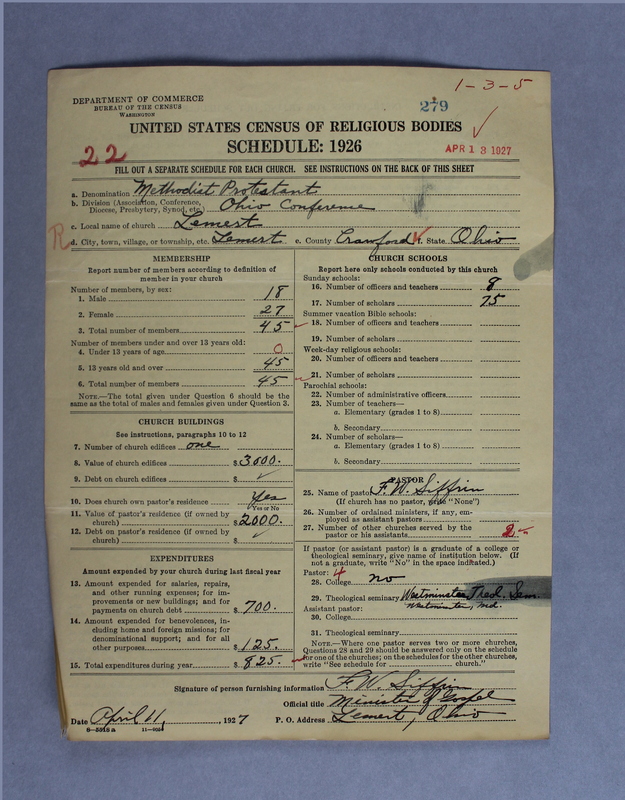 1-3-5
DEPARTMENT OF COMMERCE
BUREAU OF THE CENSUS
WASHINGTON
279
UNITED STATES CENSUS OF RELIGIOUS BODIES
SCHEDULE: 1926
22
APR 13 1927
FILL OUT A SEPARATE SCHEDULE FOR EACH CHURCH. SEE INSTRUCTIONS ON THE BACK OF THIS SHEET
a. Denomination Methodist Protestant
b. Division (Association, Conference, Diocese, Presbytery, Synod, etc.) Ohio Conference
c. Local name of church Lemert
R
d. City, town, village, or township, etc. Lemert e. County Crawford f. State Ohio
MEMBERSHIP
Report number of members according to definition of
member in your church
Number of members, by sex:
1. Male 18
2. Female 27
3. Total number of members 45
Number of members under and over 13 years old:
4. Under 13 years of age 0
5. 13 years old and over 45
6. Total number of members 45
NOTE.—The total given under Question 6 should be
same as the total of males and females given under Question 3.
CHURCH BUILDINGS
See instructions, paragraphs 10 to 12
7. Number of church edifices one
8. Value of church edifices $3000.
9. Debt on church edifices $
10. Does church own pastor's residence Yes
Yes or No
11. Value of pastor's residence (if owned by
church) $2000.
12. Debt on pastor's residence (if owned by
church) $
EXPENDITURES
Amount expended by your church during last fiscal year
13. Amount expended for salaries, repairs,
and other running expenses; for im-
provements or new buildings; and for
payments on church debt $700.
14. Amount expended for benevolences, in-
cluding home and foreign missions; for
denominational support; and for all
other purposes $125.
15. Total expenditures during year $825.
CHURCH SCHOOLS
Report here only schools conducted by this church
Sunday schools:
16. Number of officers and teachers 8
17. Number of scholars 75
Summer vacation Bible schools:
18. Number of officers and teachers
19. Number of scholars
Week-day religious schools:
20. Number of officers and teachers
21. Number of scholars
Parochial schools:
22. Number of administrative officers
23. Number of teachers—
a. Elementary (grades 1 to 8)
b. Secondary
24. Number of scholars—
a. Elementary (grades 1 to 8)
b. Secondary
PASTOR
25. Name of pastor F. W. Siffrin
(If church has no pastor, write "None")
26. Number of ordained ministers, if any, em-
ployed as assistant pastors
27. Number of other churches served by the
pastor or his assistants 2
If pastor (or assistant pastor) is a graduate of a college or
theological seminary, give name of institution below. (If
not a graduate, write "No" in the space indicated.)
Pastor: 4
28. College no
29. Theological seminary Westminster Theol. Sem.
Westminster, Md.
Assistant pastor:
30. College
31. Theological seminary
NOTE.—Where one pastor serves two or more churches,
Questions 28 and 29 should be answered only on the schedule
for one of the churches; on the schedules for the other churches,
write "See schedule for church."
Signature of person furnishing information F. W. Siffrin
Official title Minister of Gospel
Date April 11, 1927 P. O. Address Lemert, Ohio